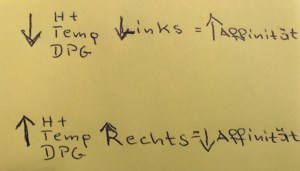 ↓ H+
Temp ↓Links = ↑Affinität
DPG
↑ H+
Temp ↑Rechts = ↓Affinität
DPG